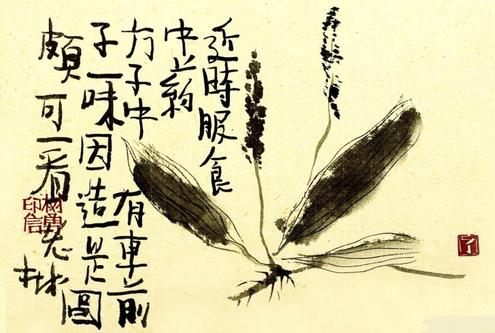 近時服食
中药
方子中有車前
子一味因造是圖
頗可一看老树
印信